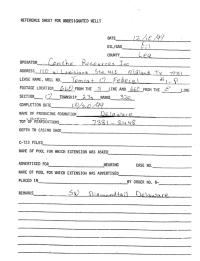 REFERENCE SHEET FOR UNDESIGNATED WELLS
DATE 12/10/99
OIL/GAS Oil
COUNTY Lea
OPERATOR Concho Resources Inc
ADDRESS 110 W Louisiana Ste 410 Midland Tx 79701
LEASE NAME, WELL NO. Tomcat 17 Federal # 8
FOOTAGE LOCATION 660 FROM THE S LINE AND 660 FROM THE E LINE
SECTION 17 TOWNSHIP 23s RANGE 32E
COMPLETION DATE
NAME OF PRODUCING FORMATION Delaware
TOP OF PERFORATIONS
DEPTH TO CASING SHOE
C-123 FILED
NAME OF POOL FOR WHICH EXTENSION WAS ASKED
ADVERTISED FOR HEARING CASE NO.
NAME OF POOL FOR WHICH EXTENSION WAS ADVERTISED
PLACED IN BY ORDER NO. R-
REMARKS SW Diamondtail Delaware